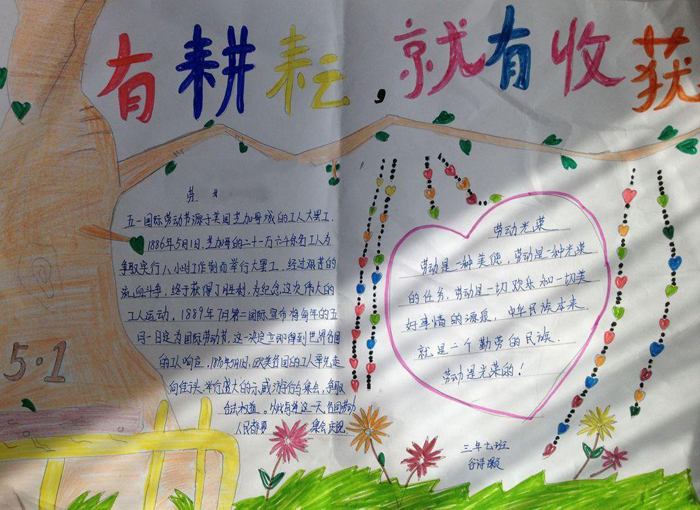 有耕耘,就有收获
5·1
五一国际劳动节源于美国芝加哥城的工人大罢工.
1886年5月1日,芝加哥的二十一万六千余名工人为
争取实行八小时工作制而举行大罢工,经过艰苦的
流血斗争,终于获得了胜利.为纪念这次伟大的
工人运动,1889年7月第二国际宣布将每年的五
月一日定为国际劳动节.这一决定立即得到世界各国
的工人响应.1890年5月1日,欧美各国的工人率先走
向街头,举行盛大的示威游行与集会,争取
合法权益.从此每逢这一天,各国劳动
人民都要集会庆祝
劳动光荣
劳动是一种美德,劳动是一种光荣
的任务,劳动是一切欢乐和一切美
好事情的源泉,中华民族本来
就是一个勤劳的民族.
劳动是光荣的!
三年七班